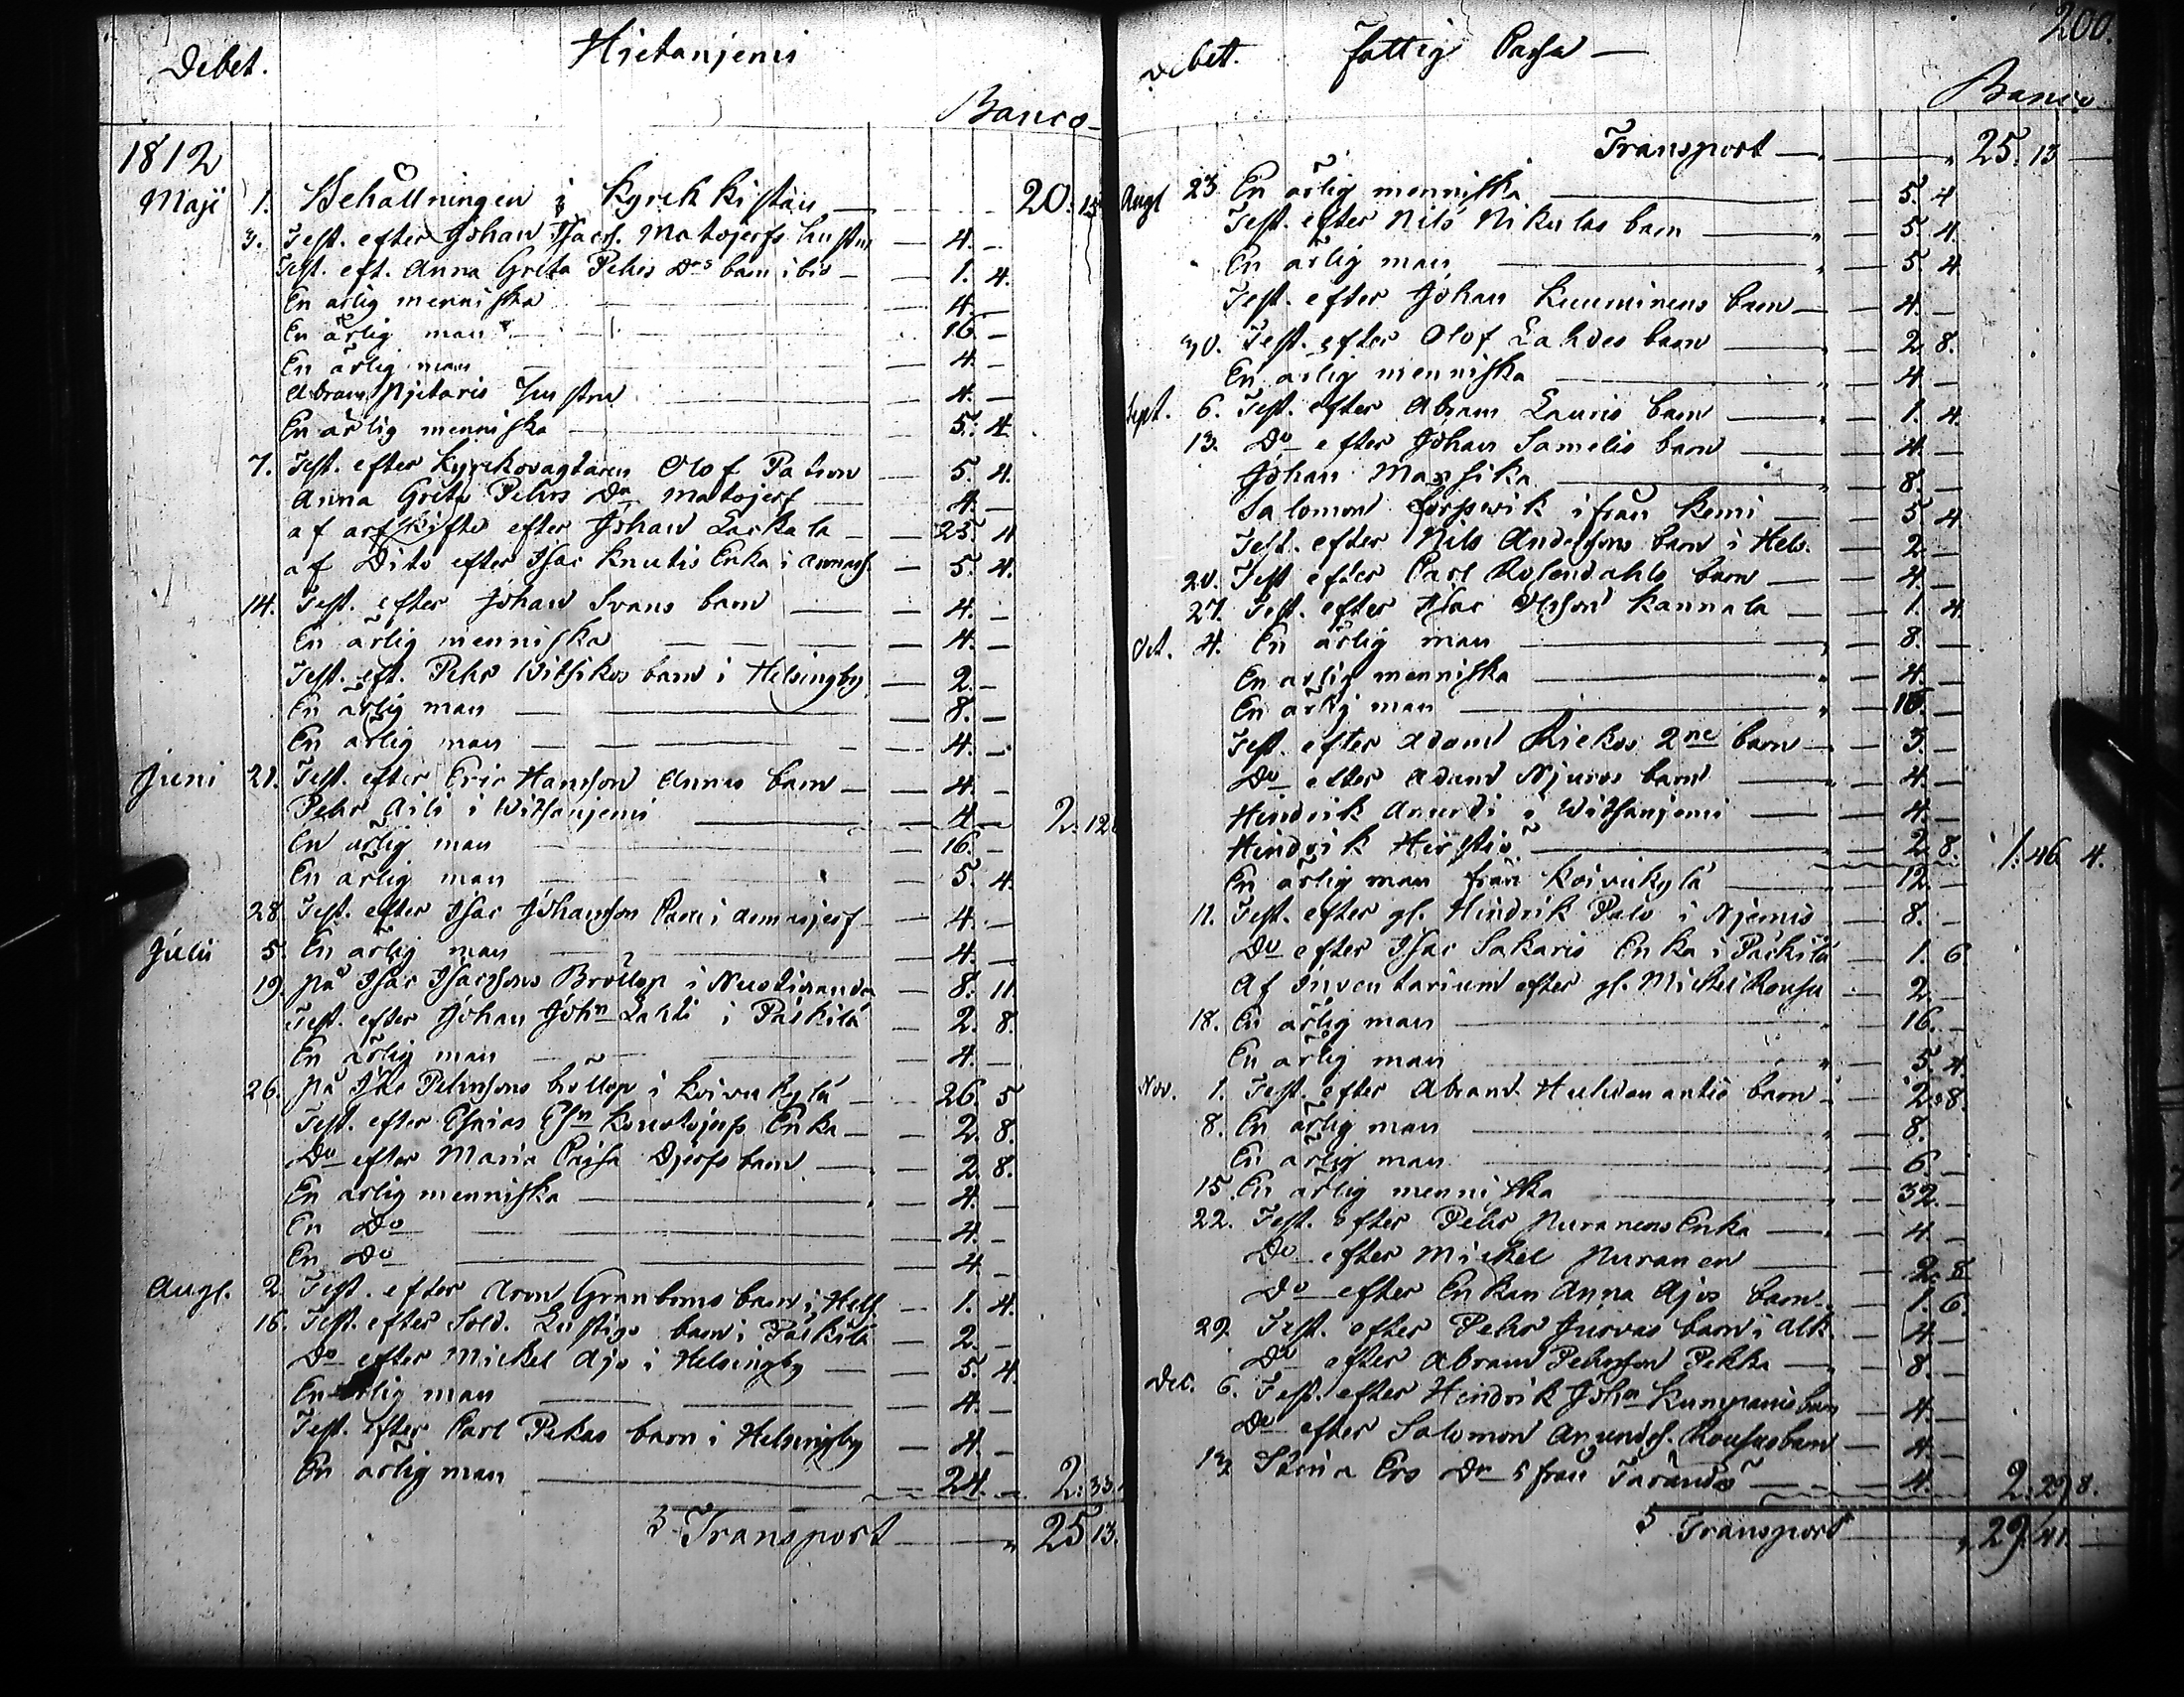 Debet. Hietanjemi
Banco
1812
Maji 1. Behållningen i Kyrckkistan — 20. 15
3. Test. efter Johan Isacs. Matojerfs hustru — 4. —
Test. eft. Anna Greta Pehrs Drs barn i bis — 1. 4.
En ärlig menniska — 4. —
En ärlig man — 16. —
En ärlig man — 4. —
Abram Njitaris hustru — 4. —
En ärlig menniska — 5. 4.
7. Test. efter Kyrkovagtaren Olof — 5. 4.
Anna Greta Pehrs Dr Matojerf — 4. —
af arfskifte efter Johan Lackala — 25. 11
af Dito efter Isac Knutis Enka i — 5. 4.
14. Test. efter Johan Svans barn — 4. —
En ärlig menniska — 4. —
Test. eft. Pehr Witsikos barn i Helsingby — 2. —
En ärlig man — 8. —
En ärlig man — 4. —
Juni 21. Test. efter Eric Hansson Annus barn — 4. —
Pehr Aili i Witsanjemi — 4 — 2. 12.
En ärlig man — 16. —
En ärlig man — 5. 4.
28. Test. efter Isac Johansson i Armasjerf — 4. —
Julii 5. En ärlig man — 4. —
19. på Isac Isacssons Bröllop i — 8. 11.
Test. efter Johan Johns Lahti i Päckilä — 2. 8.
En ärlig man — 4. —
26. på Pehrssons bröllop i Koivukylä — 26. 5
Test. efter Esaias Esn Enka — 2. 8.
Do efter Maria Cajsa Djerfs barn — 2. 8.
En ärlig menniska — 4. —
En Do — 4. —
En Do — 4. —
Augl. 2. Test. efter Aron Granboms barn i Hels — 1. 4.
16. Test. efter Sold. Lustigs barn i Päckilä — 2. —
Do efter Mickel Ajo i Helsingby — 5. 4.
En ärlig man — 4. —
Test. efter Carl Pekas barn i Helsingby — 4. —
En ärlig man — 24. — 2. 33.
Transport — 25. 13.
200.
Debet. Fattig Cassa —
Banco
Transport — 25. 13 —
Augl 23. En ärlig menniska — 5. 4
Test. efter Nils Nikulas barn — 5. 4.
En ärlig man — 5. 4
Test. efter Johan Kuuminens barn — 4. —
30. Test. efter Olof Lahdes barn — 2. 8.
En ärlig menniska — 4. —
Sept. 6. Test. efter Abram Lauris barn — 1. 4.
13. Do efter Johan Samelis barn — 4. —
Johan — 8. —
Salomon ifrån Kemi — 5. 4
Test. efter Nils Anderssons barn i Hels. — 2. —
20. Test efter Carl Rosendahls barn — 4. —
27. Test. efter Isac Olsson Kannala — 1. 4
Oct. 4. En ärlig man — 8. —
En ärlig menniska — 4. —
En ärlig man — 16. —
Test. efter Adam Kiekos 2ne barn — 3. —
Do efter Adam Njuros barn — 4. —
Hindrik Anundi i Witsanjemi — 4. —
Hindrik Hirstiö — 2. 8. 1. 46. 4.
En ärlig man från Koivukylä — 12. —
11. Test. efter gl. Hindrik Palo i Njemis — 8. —
Do efter Isac Sakaris Enka i Päckilä — 1. 6.
Af Inventarium efter gl. Mickel Rousu — 2. —
18. En ärlig man — 16. —
En ärlig man — 5. 4.
Nov. 1. Test. efter Abram barn — 2. 8.
8. En ärlig man — 8. —
En ärlig man — 6. —
15. En ärlig menniska — 32. —
22. Test. efter Pehr Nuranens Enka — 4. —
Do efter Mickel Nuranen — 2. 8
Do efter Enkan Anna Ajos barn — 1. 6.
29. Test. efter Pehr Juovas barn i Alk. — 4. —
Do efter Abram Pehrsson Pekka — 8. —
Dec. 6. Test. efter Hindrik Johs barn — 4. —
Do efter Salomon Anundss. Rousus barn — 4. —
13. Stina Ers Dr ifrån Tärändö — 4. 2. 27. 8.
Transport — 29. 41. —